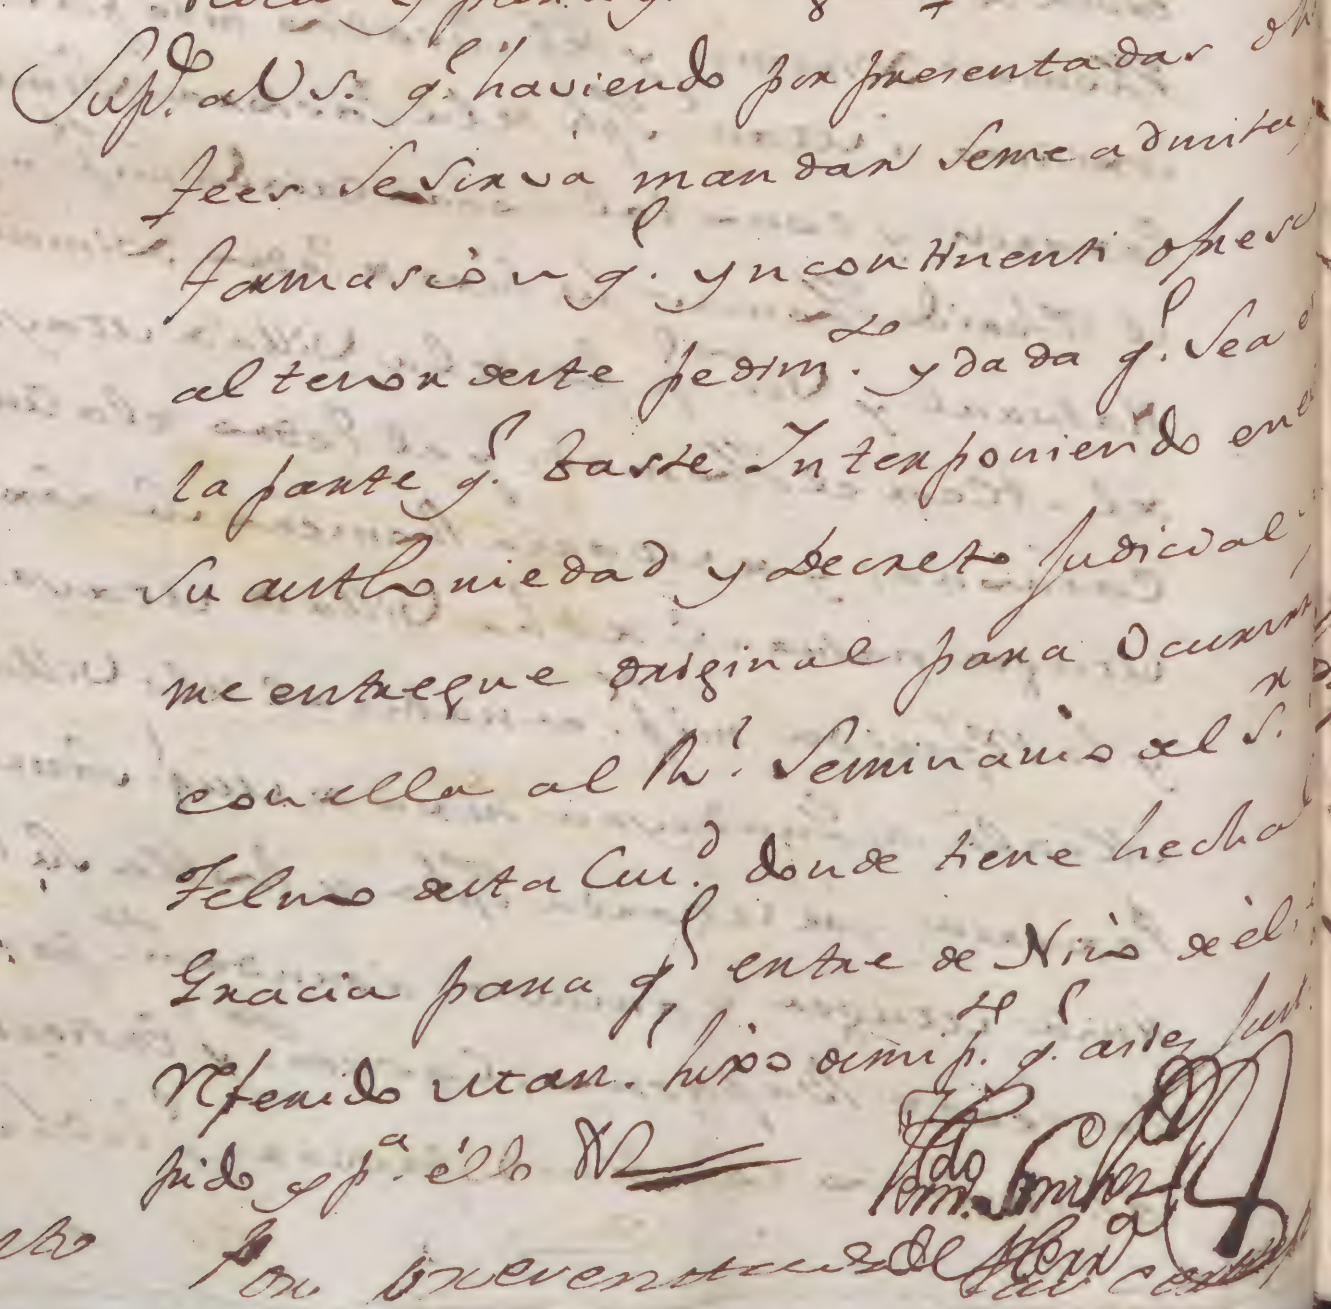 Supᶜᵒ. a V s. q.ᵉ haviendo por presentadas
fees se sirva mandar seme admita
formasiòn q.ᵉ yncontinenti ofresc
al tenor deste pedim.ᵗᵒ y dada q.ᵉ sea e
la parte q.ᵉ baste Interponiendo en e
su authoriedad y decreto Judicial
me entregue original para Ocurrir
con ella al R.ˡ Seminario del S.ʳ
Telmo desta Ciu.ᵈ donde tiene hecha
Gracia para q.ᵉ entre de Niño de èl
referido Man. hixo de mi p.ᵗᵉ q.ᵉ asi es Just
pido y p.ᵃ ello
Por presentada